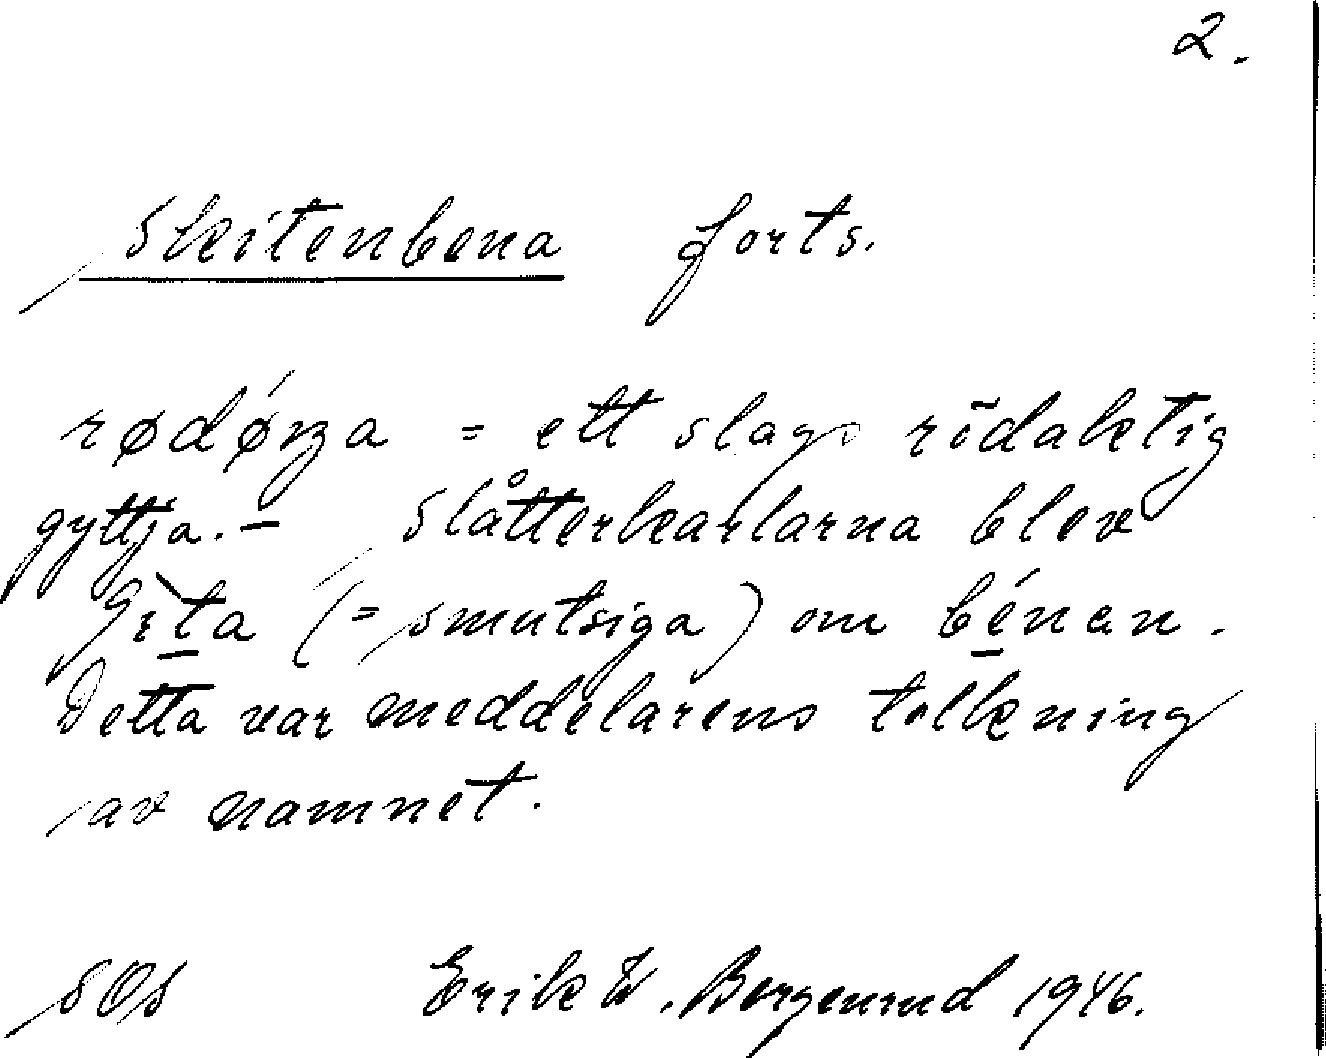 2.
Skitenbena forts.
rødǿrja = ett slags rödaktig
gyttja. - Slåtterkarlarna blev
(= smutsiga) om bénen.
Detta var meddelarens tolkning
av namnet.
SOS Erik W. Bergenrud 1946.